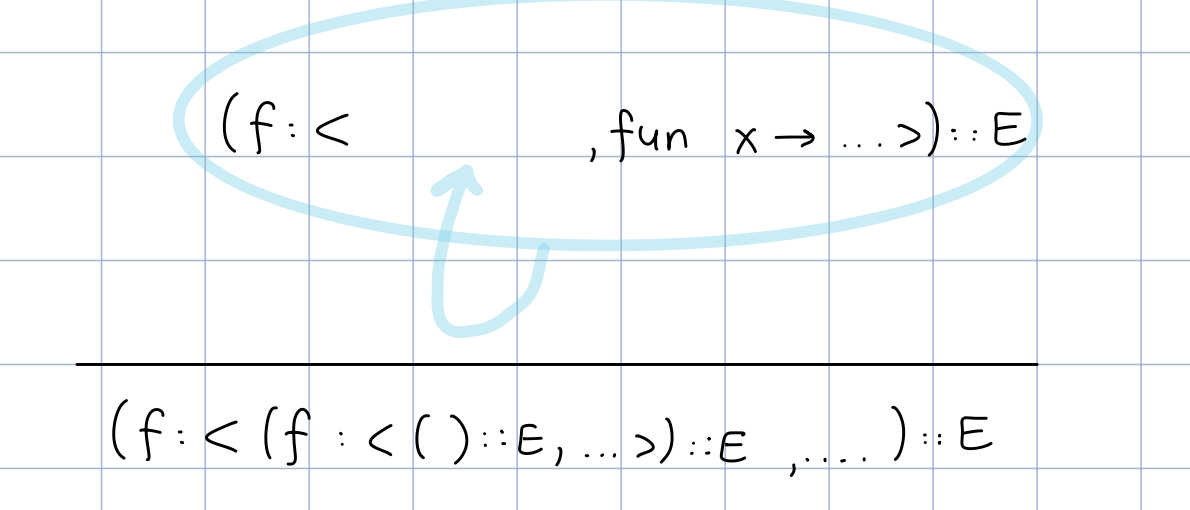 (f: < , fun x → ... >) :: E
(f: < (f : < ( ) :: E, ... >) :: E , .... ) :: E